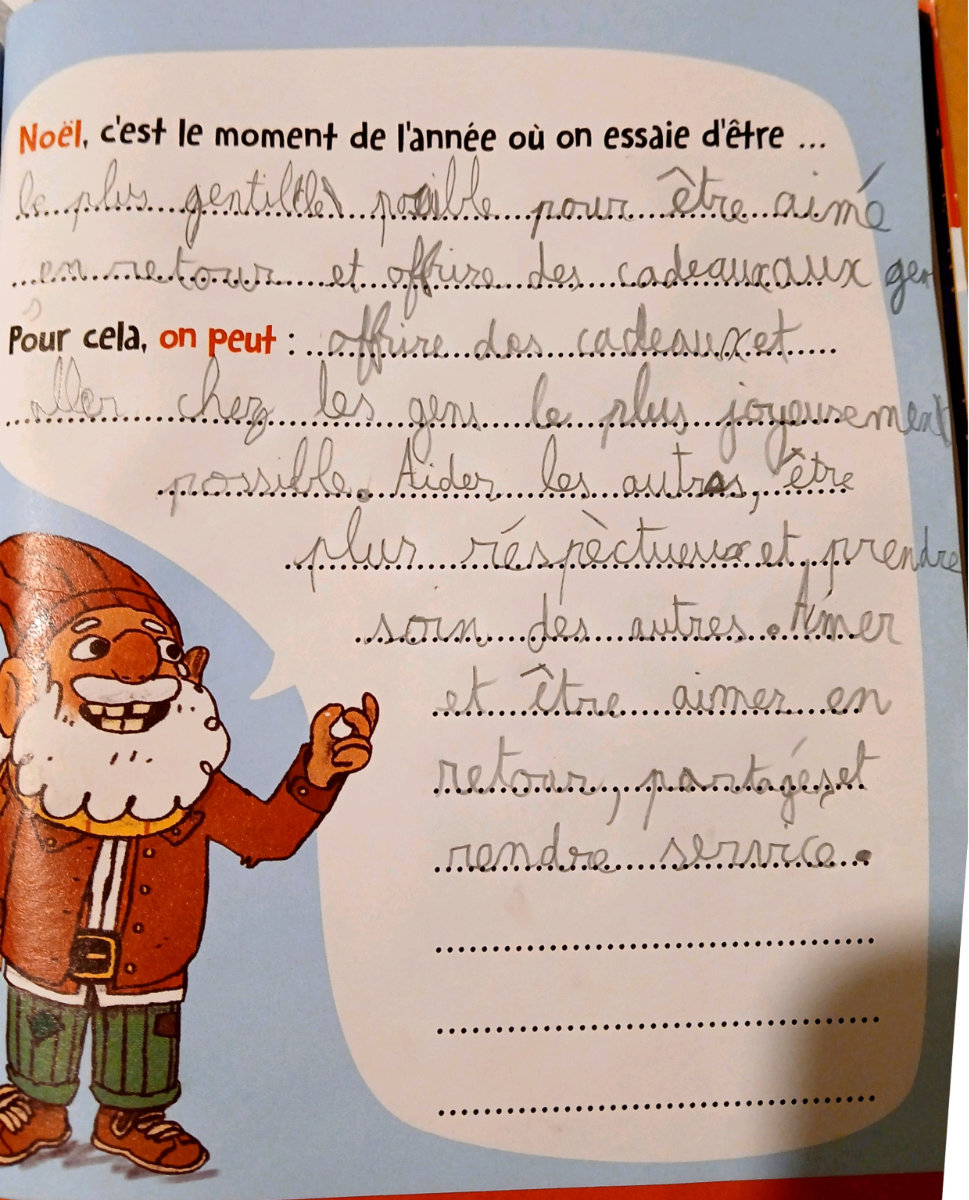 Noël, c'est le moment de l'année où on essaie d'être ...
le plus possible pour être aimé
en retour et offrire des cadeaux aux gen
s
Pour cela, on peut : offrire des cadeaux et
aller chez les gens le plus joyeusement
possible. Aider les autres, être
plus réspèctueux et prendre
soin des autres. Aimer
et être aimer en
retour, partagés et
rendre service.